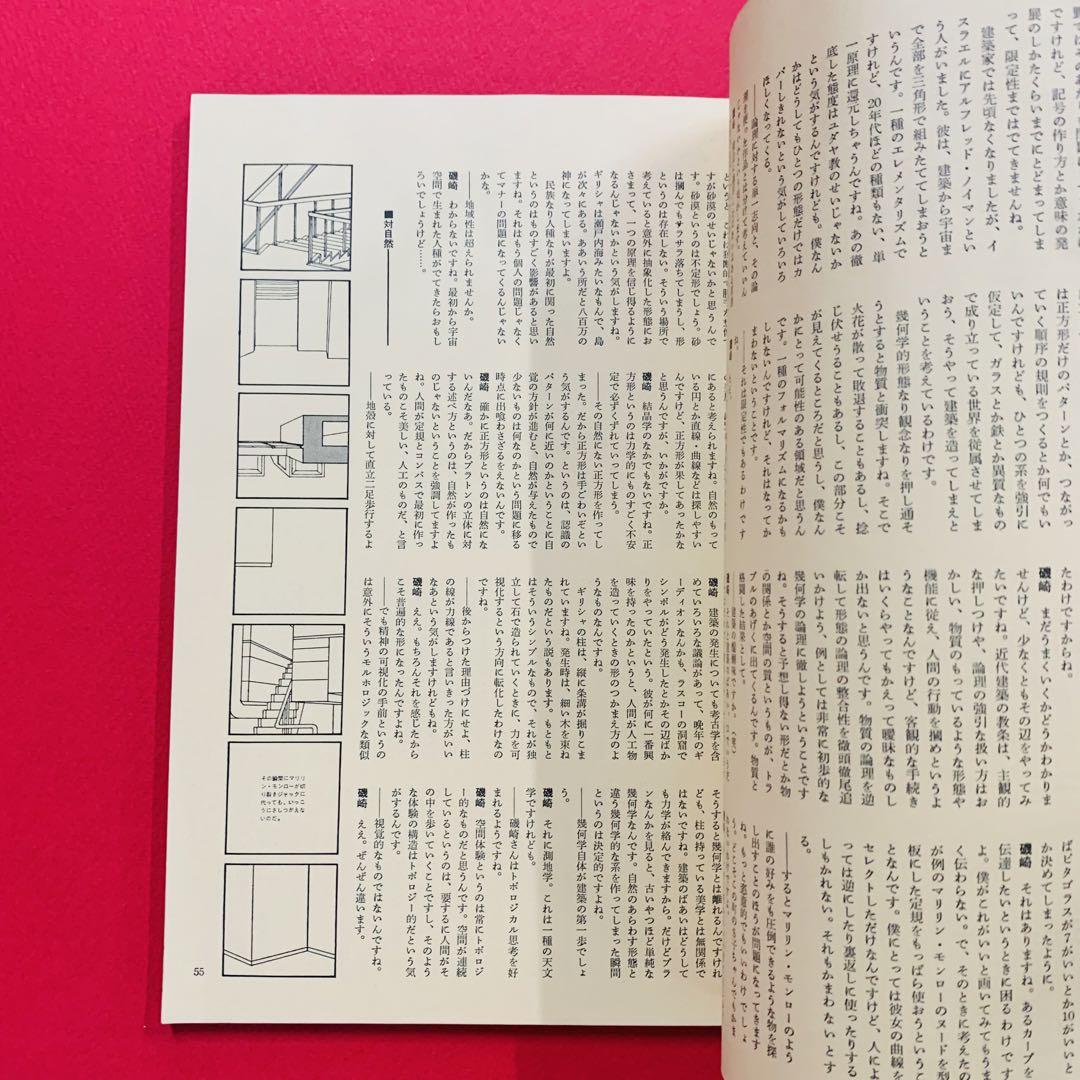 ですけれど、記号の作り方とか意味の発
展のしかたくらいまでにとどまってしま
って、限定性まではでてきませんね。
建築家では先頃なくなりましたが、イ
スラエルにアルフレッド・ノイマンとい
う人がいました。彼は、建築から宇宙ま
で全部を三角形で組みたててしまおうと
いうんです。一種のエレメンタリズムで
すけれど、20年代ほどの種類もない、単
一原理に還元しちゃうんですね。あの徹
底した態度はユダヤ教のせいじゃないか
という気がするんですけれども。僕なん
かはどうしてもひとつの形態だけではカ
バーしきれないという気がしていろいろ
ほしくなってくる。
――論理に対する単一志向と、その論
は正方形だけのパターンとか、つながっ
ていく順序の規則をつくるとか何でもい
いんですけれども、ひとつの系を強引に
仮定して、ガラスとか鉄とか異質なもの
で成り立っている世界を従属させてしま
おう、そうやって建築を造ってしまえと
いうことを考えているわけです。
幾何学的形態なり観念なりを押し通そ
うとすると物質と衝突しますね。そこで
火花が散って敗退することもあるし、捻
じ伏せうることもあるし、この部分こそ
が見えてくるところだと思うし、僕なん
かにとって可能性のある領域だと思うん
です。一種のフォルマリズムになるかも
しれないんですけれど、それはなってか
まわないということです。
――それは限定性でもあるわけです
たわけですからね。
磯崎　まだうまくいくかどうかわかりま
せんけど、少なくともその辺をやってみ
たいですね。近代建築の教条は、主観的
な押しつけや、論理の強引な扱い方はお
かしい、物質のもっているような形態や
機能に従え、人間の行動を摑めというよ
うなことなんですけど、客観的な手続き
はいくらやってもかえって曖昧なものし
か出ないと思うんです。物質の論理を逆
転して形態の論理の整合性を徹頭徹尾追
いかけよう、例としては非常に初歩的な
幾何学の論理にしようということです
ね。そうすると予想し得ない形だとか物
の関係とか空間の質というものが、トラ
ブルのあげくに出てくるんです。物質と
格闘した結果として。
ばピタゴラスが7がいいとか10がいいと
か決めてしまったように。
磯崎　それはありますね。あるカーブを
伝達したいというときに困るわけです
よ。僕がこれがいいと画いてみてもうま
く伝わらない。で、そのときに考えたの
が例のマリリン・モンローのヌードを型
板にした定規をもっぱら使おうというこ
となんです。僕にとっては彼女の曲線を
セレクトしただけなんですけど、人によ
っては逆にしたり裏返しに使ったりする
しもかまわない。それもかまわないとす
る。
――するとマリリン・モンローのよう
に誰の好みをも圧倒できるような物を探
し出すことのほうが問題になってきます
ね。もっと恣意的でもいいわけでしょ
すが砂漠のせいじゃないかと思うんで
す。砂漠というのは不定形でしょう。砂
は摑んでもサラサラ落ちてしまうし、形
というのは存在しない。そういう場所で
考えていると意外に抽象化した形態にお
さまって、一つの原理を信じ得るように
なるんじゃないかという気がしますね。
ギリシャは瀬戸内海みたいなもんで、島
が次々にある。ああいう所だと八百万の
神になってしまいますよ。
民族なり人種なりが最初に関った自然
というのはものすごく影響があると思い
ますね。それはもう個人の問題じゃなく
てマナーの問題になってくるんじゃない
かな。
――地域性は超えられませんか。
磯崎　わからないですね。最初から宇宙
空間で生まれた人種がでてきたらおもし
ろいでしょうけど……。
■対自然
にあると考えられますね。自然のもって
いる円とか直線・曲線などは探しやすい
んですけど、正方形が果してあったかな
と思うんですが、いかがですか。
磯崎　結晶学のなかでもないですね。正
方形というのは力学的にものすごく不安
定で必ずくずれていってしまう。
――その自然にない正方形を作ってし
まった。だから正方形は手ごわいぞとい
う気がするんです。というのは、認識の
パターンが何に近いのかということに自
覚の方針が進むと、自然が与えたもので
少ないものは何なのかという問題に移る
時点に出喰わさざるをえないんです。
磯崎　確かに正方形というのは自然にな
いんだなあ。だからプラトンの立体に対
する述べ方というのは、自然が作ったも
のじゃないということを強調してますよ
ね。人間が定規とコンパスで最初に作っ
たものこそ美しい、人工のものだ、と言
っている。
――地殻に対して直立二足歩行するよ
磯崎　建築の発生についても考古学を含
めていろいろな議論があって、晩年のギ
ーディオンなんかも、ラスコーの洞窟で
シンボルがどう発生したとかその辺ばか
りをやっていたという。彼が何に一番興
味を持ったのかというと、人間が人工物
を作っていくときの形のつかまえ方のよ
うなものなんですね。
ギリシャの柱は、縦に条溝が掘りこま
れていますね。発生時は、細い木を束ね
たものだという説もあります。もともと
はそういうシンプルなもので、それが独
立して石で造られていくときに、力を可
視化するという方向に転化したわけなの
ですね。
――後からつけた理由づけにせよ、柱
の線が力線であると言いきった方がいい
なあという気がしますけれどもね。
磯崎　ええ。もちろんそれを感じたから
こそ普遍的な形になったんですよね。
――でも精神の可視化の手前というの
は意外にそういうモルホロジックな類似
そうすると幾何学とは離れるんですけれ
ども、柱の持っている美学とは無関係で
はないですね。建築のばあいはどうして
も力学が絡んできますから。だけどプラ
ンなんかを見ると、古いやつほど単純な
幾何学なんです。自然のあらわす形態と
違う幾何学的な系を作ってしまった瞬間
というのは決定的ですよね。
――幾何学自体が建築の第一歩でしょ
う。
磯崎　それに測地学。これは一種の天文
学ですけれども。
――磯崎さんはトポロジカル思考を好
まれるようですね。
磯崎　空間体験というのは常にトポロジ
ー的なものだと思うんです。空間が連続
しているというのは、要するに人間がそ
の中を歩いていくことですし、そのよう
な体験の構造はトポロジー的だという気
がするんです。
――視覚的なものではないんですね。
磯崎　ええ。ぜんぜん違います。
その論策にマリリ
ン・モンローが切
り裂きジャックに
代っても、いっこ
うにさしつかえな
いのだ。
55